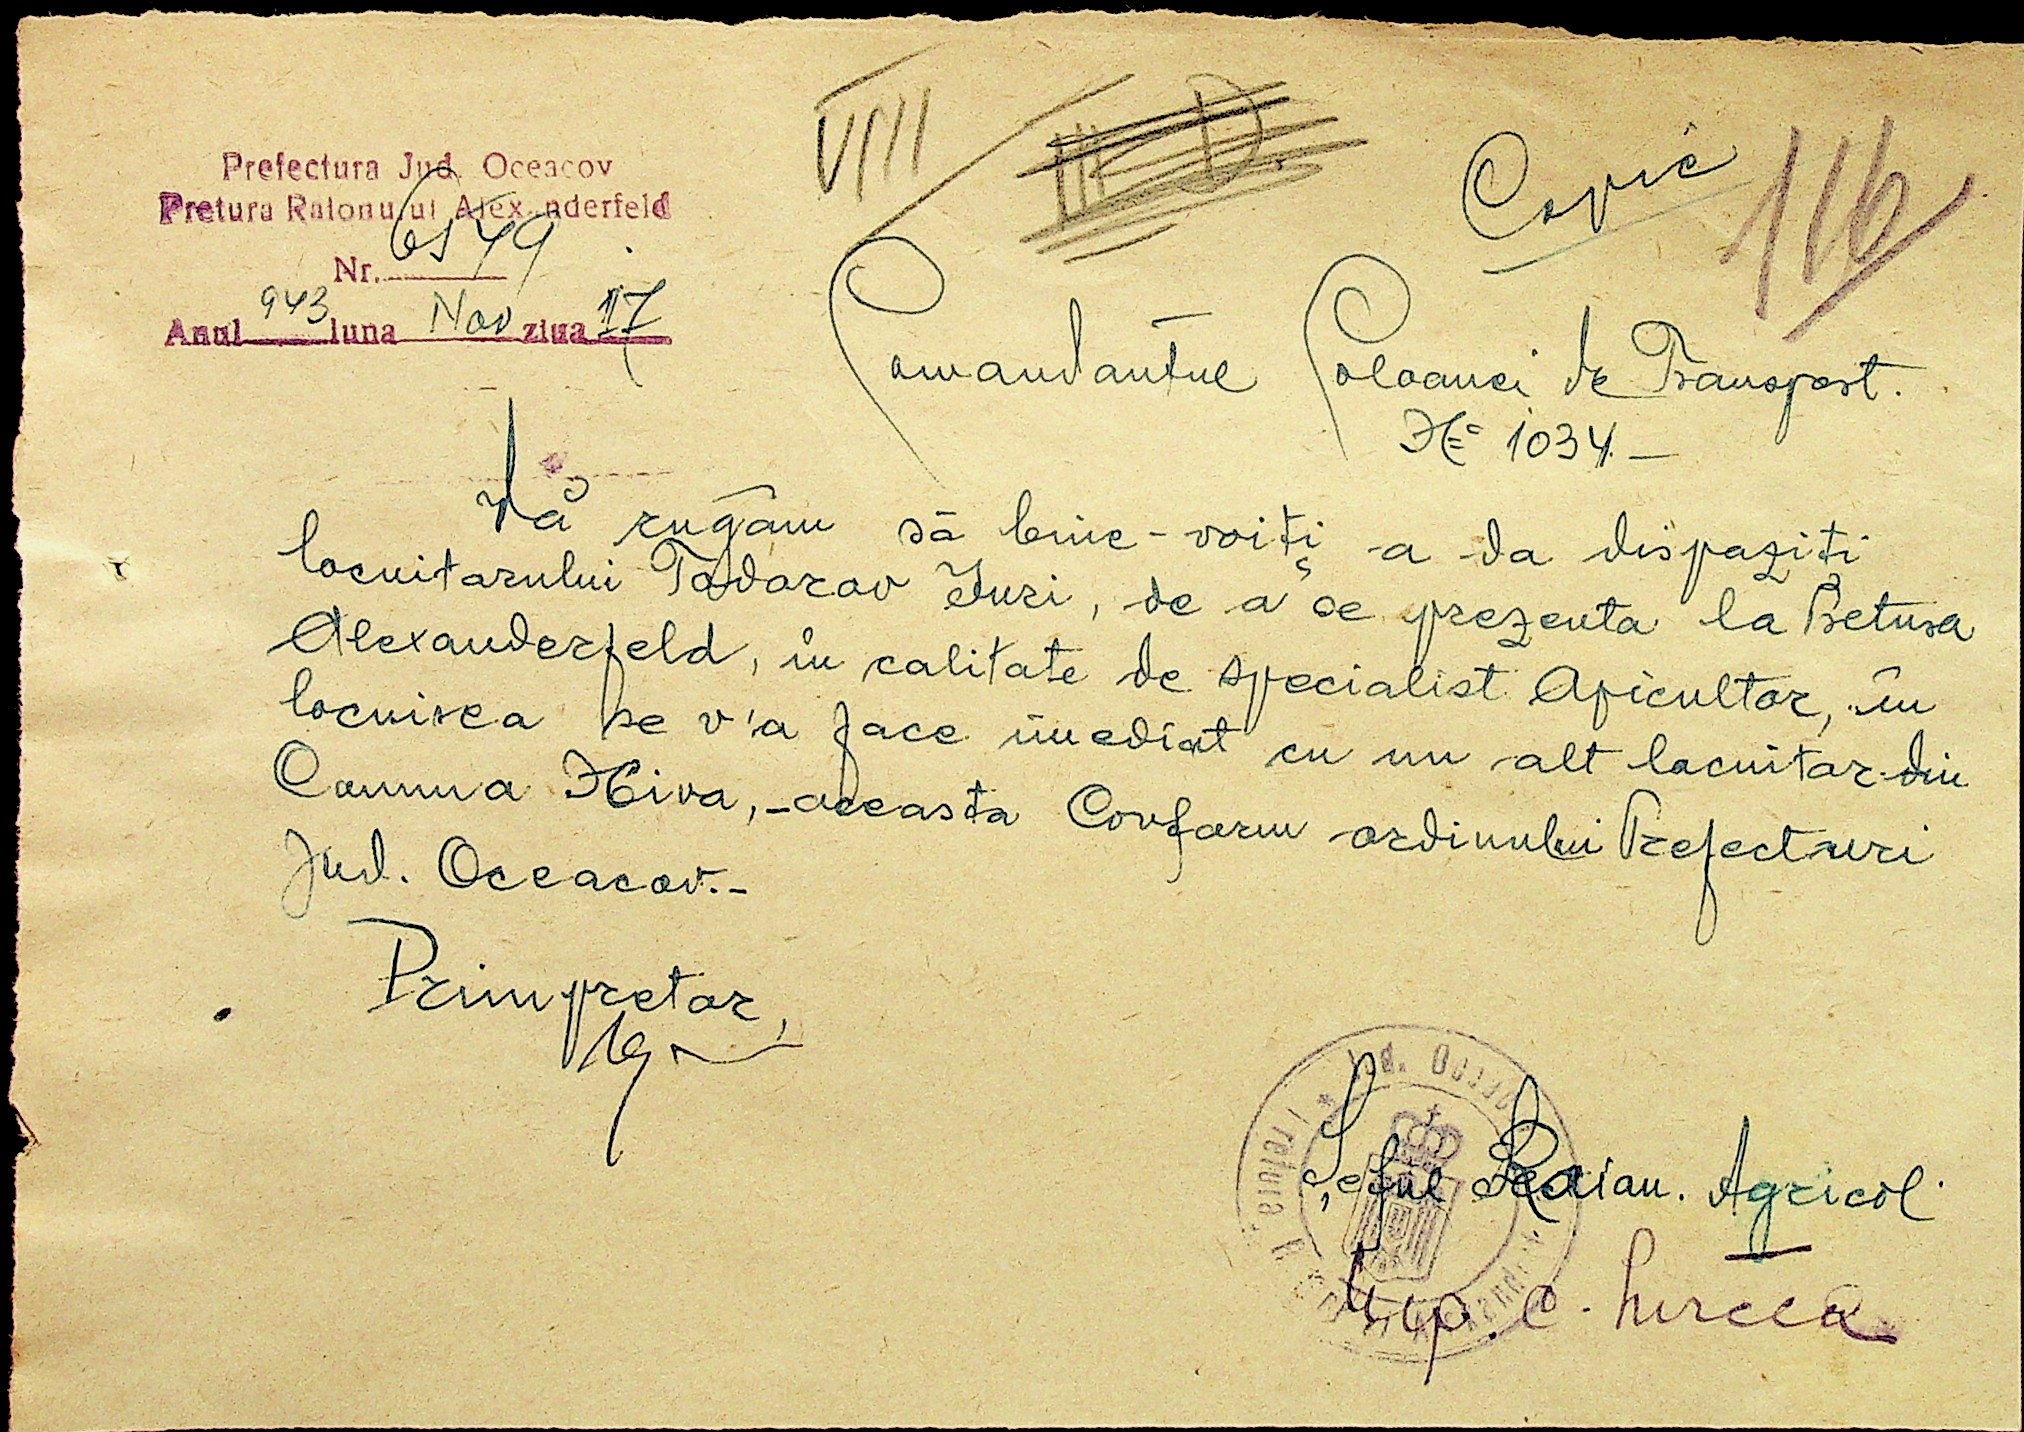 VIII
Copie
116
Prefectura Jud. Oceacov
Pretura Raionului Alexanderfeld
Nr. 6549
Anul 943 luna Nov ziua 17
Comandantul Coloanei de Transport.
No 1034.–
Vă rugăm să bine-voiți a da dispoziți
locuitorului Todorov Iuri, de a se prezenta la Pretura
Alexanderfeld, în calitate de specialist Apicultor, în
locuirea se v'a face imediat cu un alt locuitor din
Comuna Hiva, –aceasta Conform ordinului Prefecturi
Jud. Oceacov.–
Primpretor,
Șeful Raion. Agricol
C. Mircea